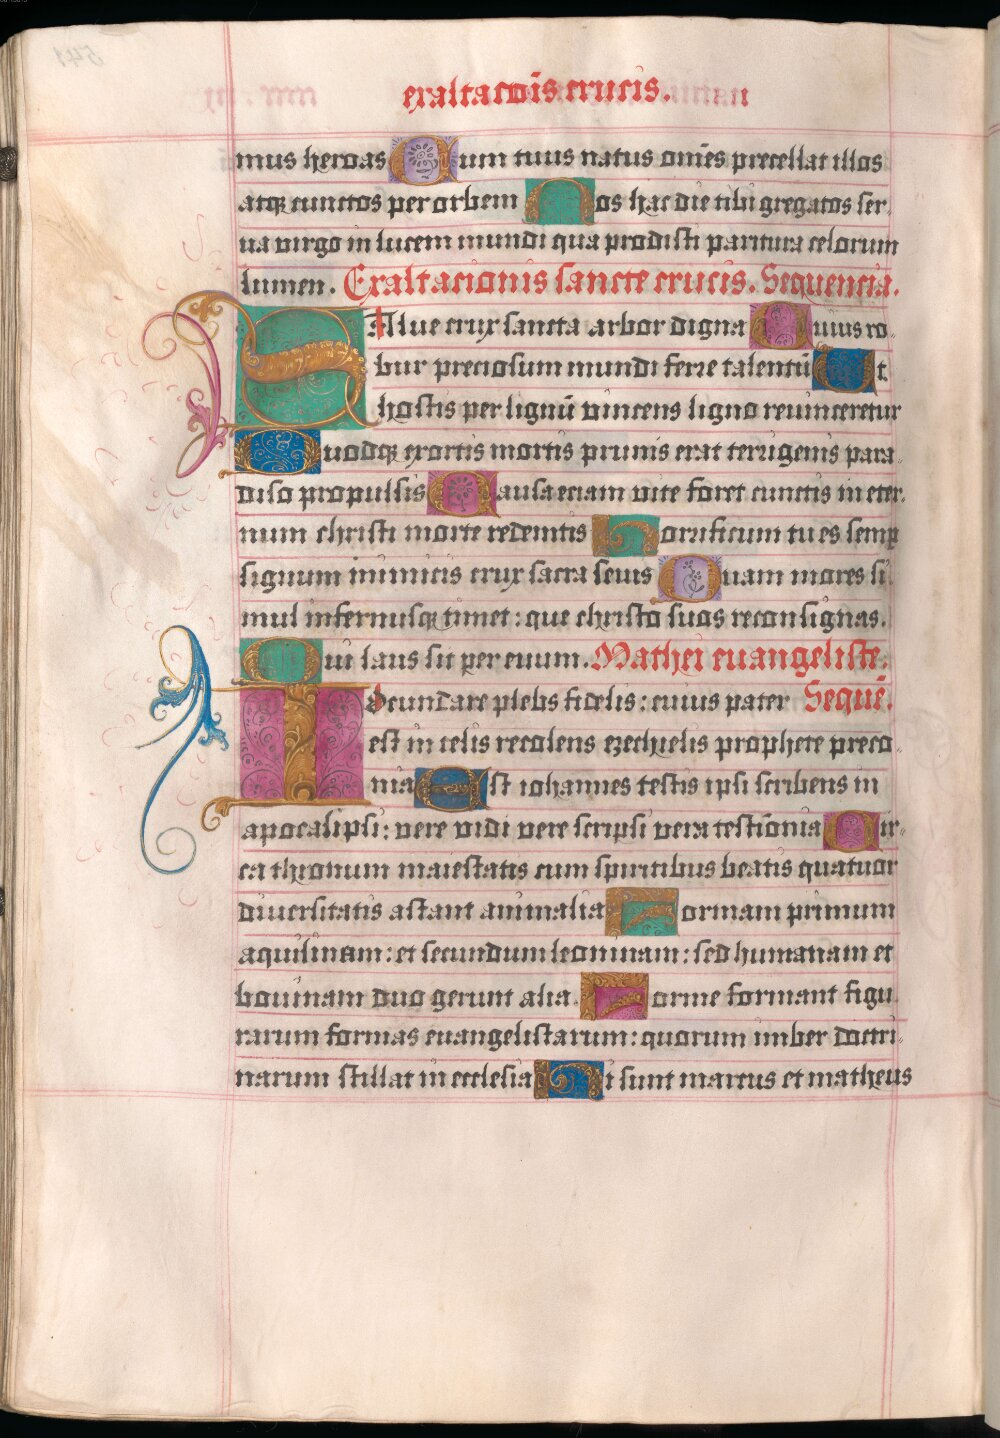 exaltac̄ois crucis.
mus heroas Cum tuus natus om̄es precellat illos
atqꝫ cunctos per orbem Nos hac die tibi gregatos ser-
ua virgo in lucem mundi qua prodisti paritura celorum
lumen. Exaltacionis sancte crucis. Sequencia.
SAlue crux sancta arbor digna Cuius ro-
bur preciosum mundi ferre talentū Ut
hostis per lignū vincens ligno reuinceretur
Quodqꝫ exortis mortis primis erat terrigenis para-
diso propulsis Causa eciam vite foret cunctis in eter-
num christi morte redemtis Horrificum tu es semꝑ
signum inimicis crux sacra seuis Quam mores si-
mul infernusqꝫ timet: que christo suos reconsignas.
Cui laus sit per euum. Mathei euangeliste.
Iocundare plebs fidelis: cuius pater Sequē.
est in celis recolens ezechielis prophete preco-
nia Est iohannes testis ipsi scribens in
apocalipsi: vere vidi vere scripsi vera testīonia Cir-
ca thronum maiestatis cum spiritibus beatis quatuor
diuersitatis astant animalia Formam primum
aquilinam: et secundum leoninam: sed humanam et
bouinam duo gerunt alia Forme formant figu-
rarum formas euangelistarum: quorum imber doctri-
narum stillat in ecclesia Hi sunt marcus et matheus